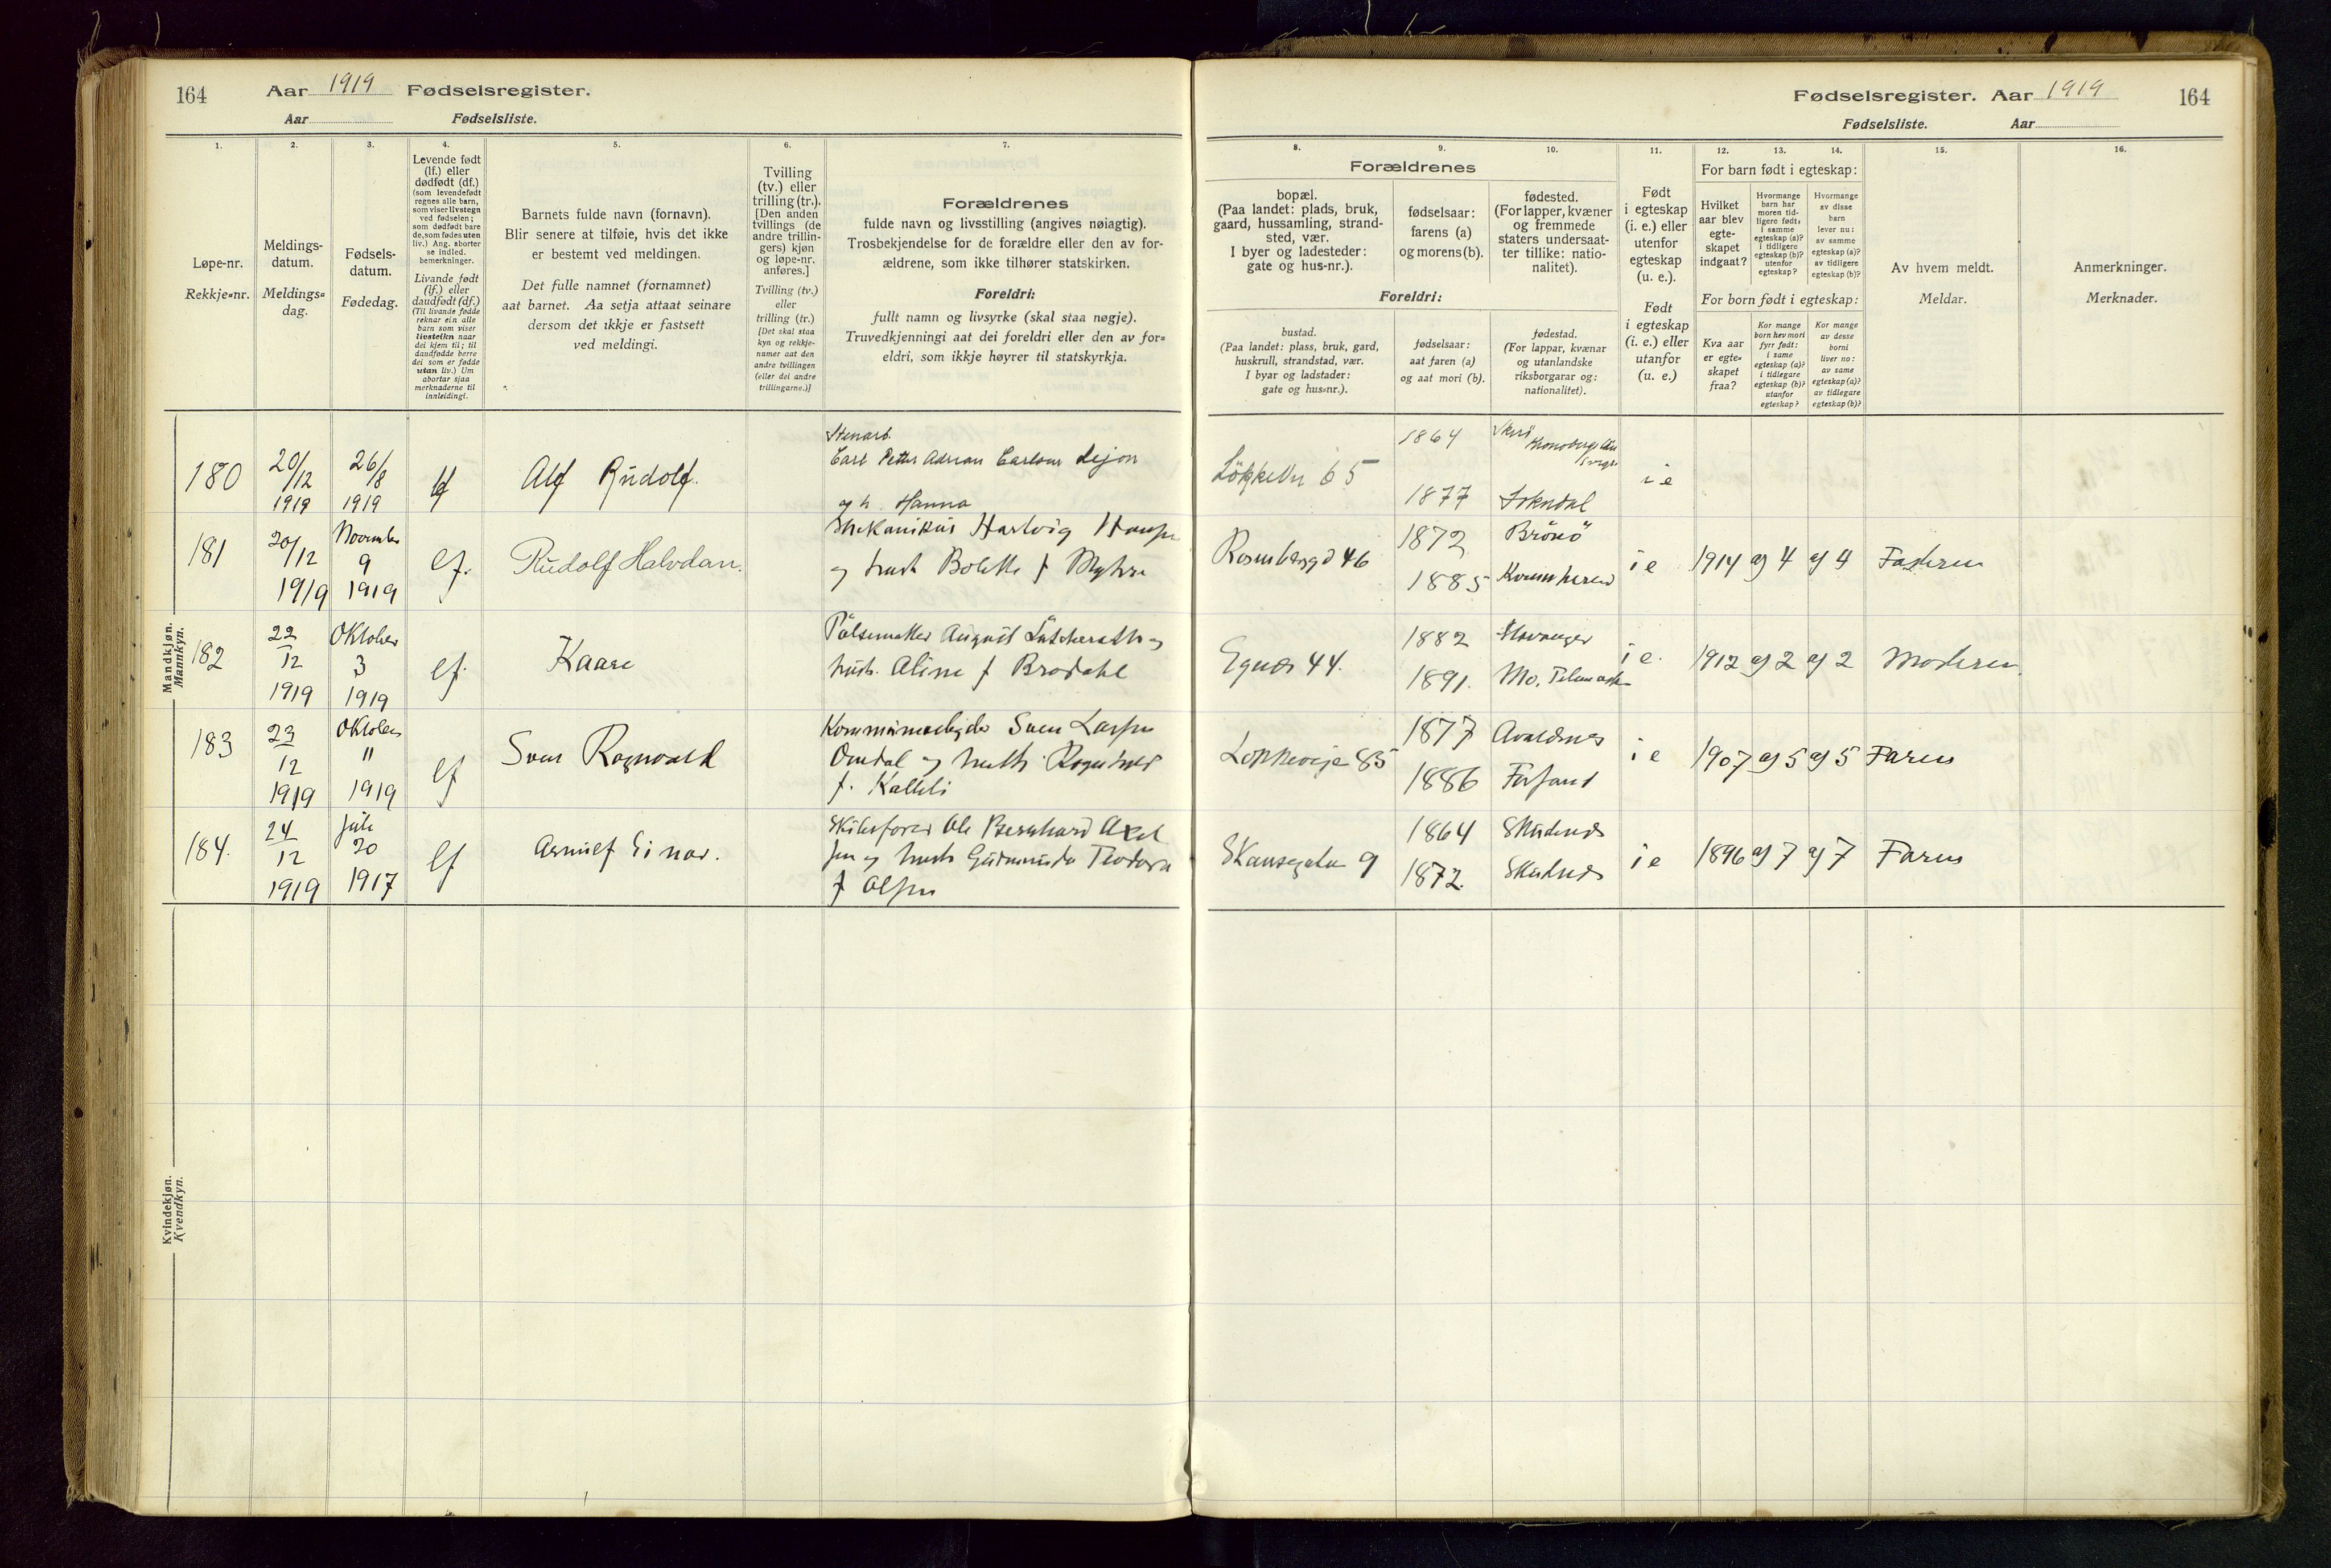 164 Aar 1919 Fødselsregister.
Aar Fødselsliste.
Fødselsregister. Aar 1919 164
Fødselsliste. Aar
1. 2. 3. 4. 5. 6. 7.
Løpe-nr.
Rekkje=nr.
Meldings-
datum.
Meldings=
dag.
Fødsels-
datum.
Fødedag.
Levende født
(lf.) eller
dødfødt (df.)
(som levendefødt
regnes alle barn,
som viser livstegn
ved fødselen;
som dødfødt bare
de, som fødes uten
liv.) Ang. aborter
se indled.
bemerkninger.
Livande født
(lf.) eller
daudfødt (df.)
(Til livande fødde
reknar ein alle
barn som viser
livsteikn naar
dei kjem til; til
daudfødde berre
dei som er fødde
utan liv.) Um
abortar sjaa
merknaderne til
innleidingi.
Barnets fulde navn (fornavn).
Blir senere at tilføie, hvis det ikke
er bestemt ved meldingen.
Det fulle namnet (fornamnet)
aat barnet. Aa setja attaat seinare
dersom det ikkje er fastsett
ved meldingi.
Tvilling
(tv.) eller
trilling (tr.).
[Den anden
tvillings (de
andre trillin-
gers) kjøn
og løpe-nr.
anføres.]
Tvilling (tv.)
eller
trilling (tr.)
[Det skal staa
kyn og rekkje-
numer aat den
andre tvillingen
(eller dei andre
trillingarne.)]
Forældrenes
fulde navn og livsstilling (angives nøiagtig).
Trosbekjendelse for de forældre eller den av for-
ældrene, som ikke tilhører statskirken.
Foreldri:
fullt namn og livsyrke (skal staa nøgje).
Truvedkjenningi aat dei foreldri eller den av for=
eldri, som ikkje høyrer til statskyrkja.
8. 9. 10. 11. 12. 13. 14. 15. 16.
Forældrenes
bopæl.
(Paa landet: plads, bruk,
gaard, hussamling, strand-
sted, vær.
I byer og ladesteder:
gate og hus-nr.).
fødselsaar:
farens (a)
og morens (b).
fødested.
(For lapper, kvæner
og fremmede
staters undersaat-
ter tillike: natio-
nalitet).
Foreldri:
bustad.
(Paa landet: plass, bruk, gard,
huskrull, strandstad, vær.
I byar og ladstader:
gate og hus=nr.).
fødselsaar:
aat faren (a)
og aat mori (b).
fødestad.
(For lappar, kvænar
og utanlandske
riksborgarar og:
nationalitet).
Født
i egteskap
(i. e.) eller
utenfor
egteskap
(u. e.).
Født
i egteskap
(i. e.) eller
utanfor
(u. e.)
For barn født i egteskap:
Hvilket
aar blev
egte-
skapet
indgaat?
Hvormange
barn har
moren tid-
ligere født:
i samme
egteskap (a)?
i tidligere
egteskap (b)?
utenfor
egteskap?
Hvormange
av disse
barn
lever nu:
av samme
egteskap (a)?
av tidligere
egteskap (b)?
For born født i egteskap:
Kva aar
er egte=
skapet
fraa?
Kor mange
born hev mori
fyrr født:
i same
egteskap (a)?
i tidlegare
egteskap (b)?
utanfor
egteskap?
Kor mange
av desse
borni
liver no:
av same
egteskap (a)?
av tidlegare
egteskap (b)?
Av hvem meldt.
Meldar.
Anmerkninger.
Merknader.
Mandkjøn.
Mannkyn.
180 20/12 1919 26/8 1919 lf Alf Rudolf.
Stenarb.
Carl Petter Adrian Carlson Lejon
og h. Hanna
65 1864
1877 Sokndal
i e
181 20/12 1919 November 9 1919 lf. Rudolf Halvdan.
Mekanikus Hartvig Hansen
og hust Bolette f Myhre
46 1872 Brönö
1885
i e 1914 og 4 og 4 Faderen
182 22/12 1919 Oktober 3 1919 lf. Kaare
Pölsemaker August
og hust. Aline f Brodahl
44. 1882 Stavanger
1891. Mo, Telemarken
i e. 1912 og 2 og 2 Moderen
183 23/12 1919 Oktober 11 1919 lf Sven Ragnvald
Sven Larsen
Omdal og hustr. Ragnhild
f.
85 1877 Avaldsnes
1886 Forsand
i e 1907 og 5 og 5 Faren
184. 24/12 1919 Juli 20 1917 lf Arnulf Einar.
Skibsfører Ole Bernhard Axel
sen og hust Gudmunda Teodora
f Olsen
Skansegaten 9 1864 Skudenes
1872. Skudenes
i e 1896 og 7 og 7 Faren
Kvindekjøn.
Kvendkyn.